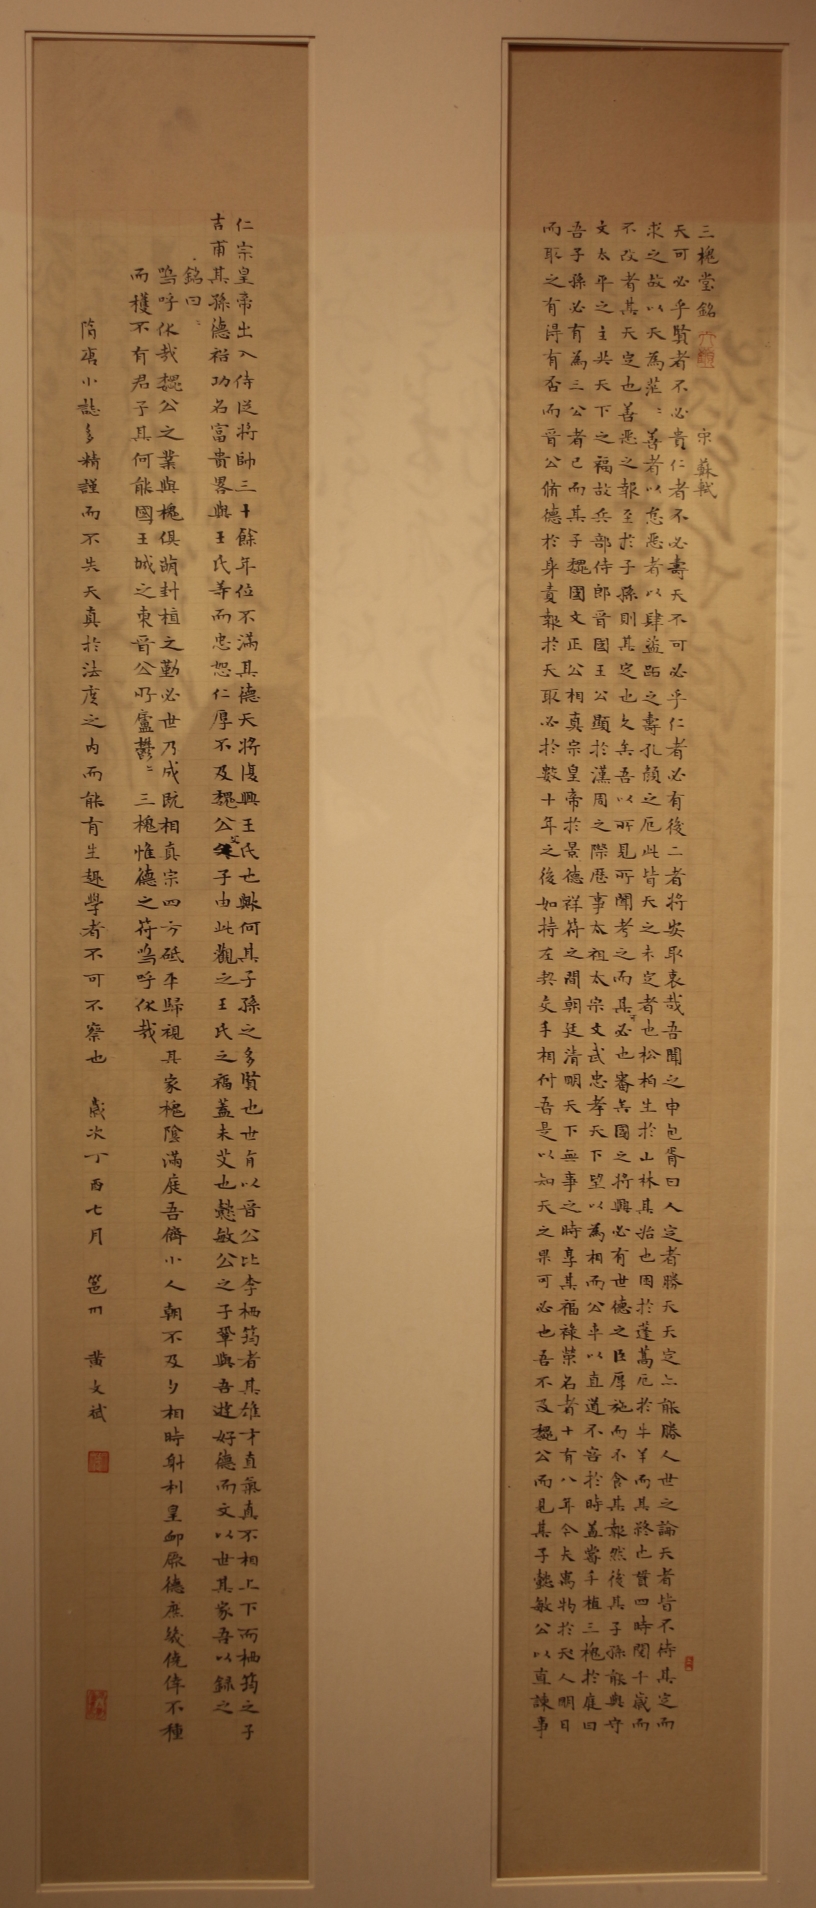 三槐堂銘 宋 蘇軾
天可必乎賢者不必貴仁者不必壽天不可必乎仁者必有後二者將安取衷哉吾聞之申包胥曰人定者勝天天定亦能勝人世之論天者皆不待其定而
求之故以天為茫〻善者以怠惡者以肆盜跖之壽孔顏之厄此皆天之未定者也松柏生於山林其始也困於蓬蒿厄於牛羊而其終也貫四時閱千歲而
不改者其天定也善惡之報至於子孫則其定也久矣吾以所見所聞考之而其可必也審矣國之將興必有世德之臣厚施而不食其報然後其子孫能與守
文太平之主共天下之福故兵部侍郎晉國王公顯於漢周之際歷事太祖太宗文武忠孝天下望以為相而公卒以直道不容於時蓋嘗手植三槐於庭曰
吾子孫必有為三公者已而其子魏國文正公相真宗皇帝於景德祥符之間朝廷清明天下無事之時享其福祿榮名者十有八年今夫寓物於人明日
而取之有得有否而晉公脩德於身責報於天取必於數十年之後如持左契交手相付吾是以知天之果可必也吾不及魏公而見其子懿敏公以直諫事
仁宗皇帝出入侍從將帥三十餘年位不滿其德天將復興王氏也歟何其子孫之多賢也世有以晉公比李栖筠者其雄才直氣真不相上下而栖筠之子
吉甫其孫德裕功名富貴畧與王氏等而忠恕仁厚不及魏公父子由此觀之王氏之福蓋未艾也懿敏公之子鞏與吾遊好德而文以世其家吾以錄之
銘曰
嗚呼休哉魏公之業與槐俱萌封植之勤必世乃成既相真宗四方砥平歸視其家槐陰滿庭吾儕小人朝不及夕相時射利皇卹厥德庶幾僥倖不種
而穫不有君子其何能國王城之東晉公所廬鬱〻三槐惟德之符嗚呼休哉
隋唐小誌多精謹而不失天真於法度之內而能有生趣學者不可不察也 歲次丁酉七月 邕州 黃文斌